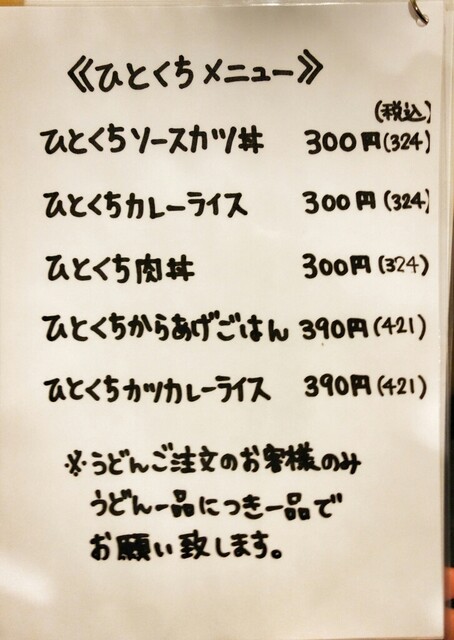 《ひとくちメニュー》
(税込)
ひとくちソースカツ丼 300円(324)
ひとくちカレーライス 300円(324)
ひとくち肉丼 300円(324)
ひとくちからあげごはん 390円(421)
ひとくちカツカレーライス 390円(421)
※うどんご注文のお客様のみ
うどん一品につき一品で
お願い致します。